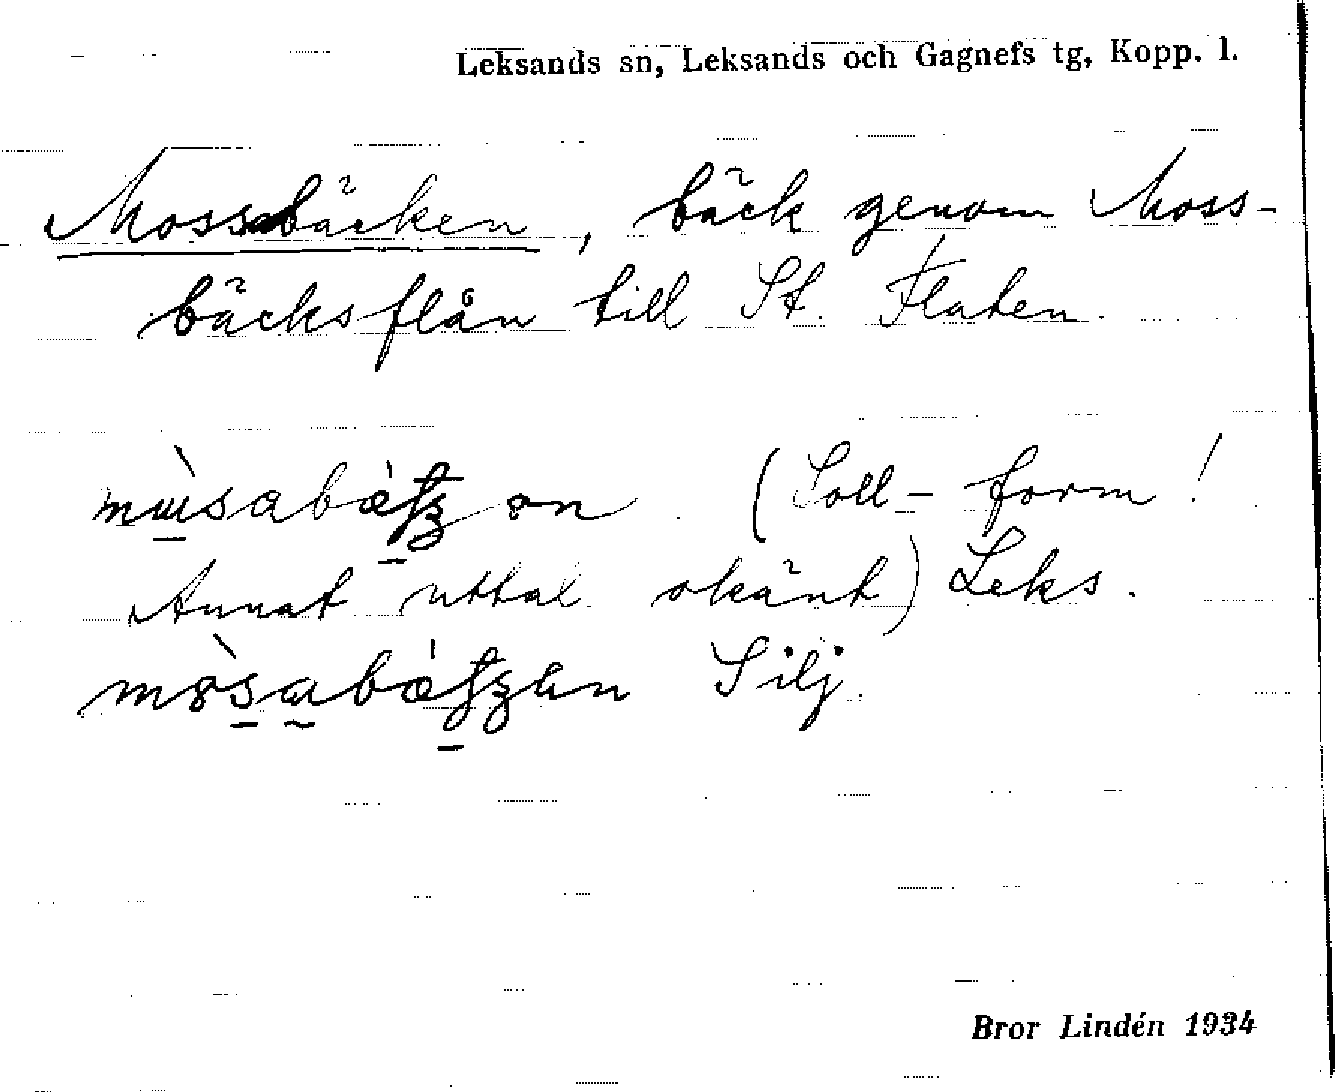 Leksands sn, Leksands och Gagnefs tg, Kopp. l.
Mossabäcken, bäck genom Moss-
bäcksflån till St. Flaten.
(Soll-form!
Annat uttal okänt) Leks.
Silj.
Bror Lindén 1934